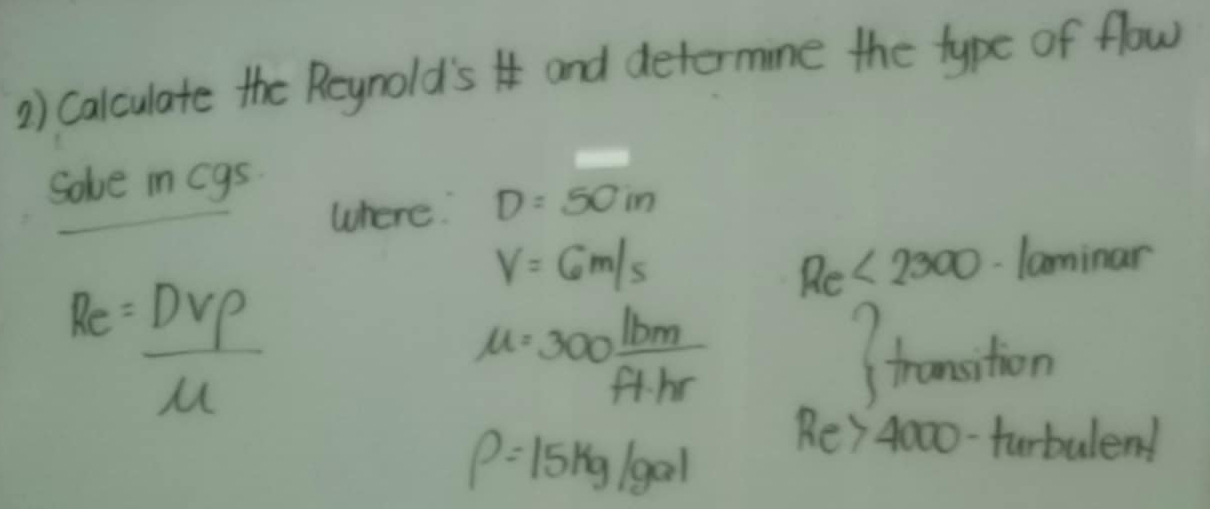 2) Calculate the Reynold's # and determine the type of flow
Solve in cgs.
where: D = 50 in
V = 6m/s
Re = Dvρ / μ
μ = 300 lbm / ft·hr
ρ = 15 Kg/gal
Re < 2300 - laminar
} transition
Re > 4000 - turbulent